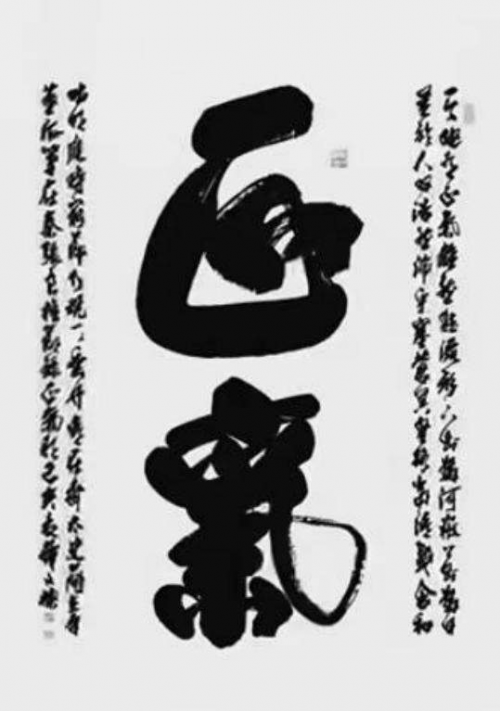 正氣
天地有正氣雜然賦流形下則為河嶽上則為日
星於人曰浩然沛乎塞蒼冥皇路當清夷含和
吐明庭時窮節乃現一一垂丹青在齊太史簡在晉
董狐筆在秦張良椎節錄正氣歌於己亥春